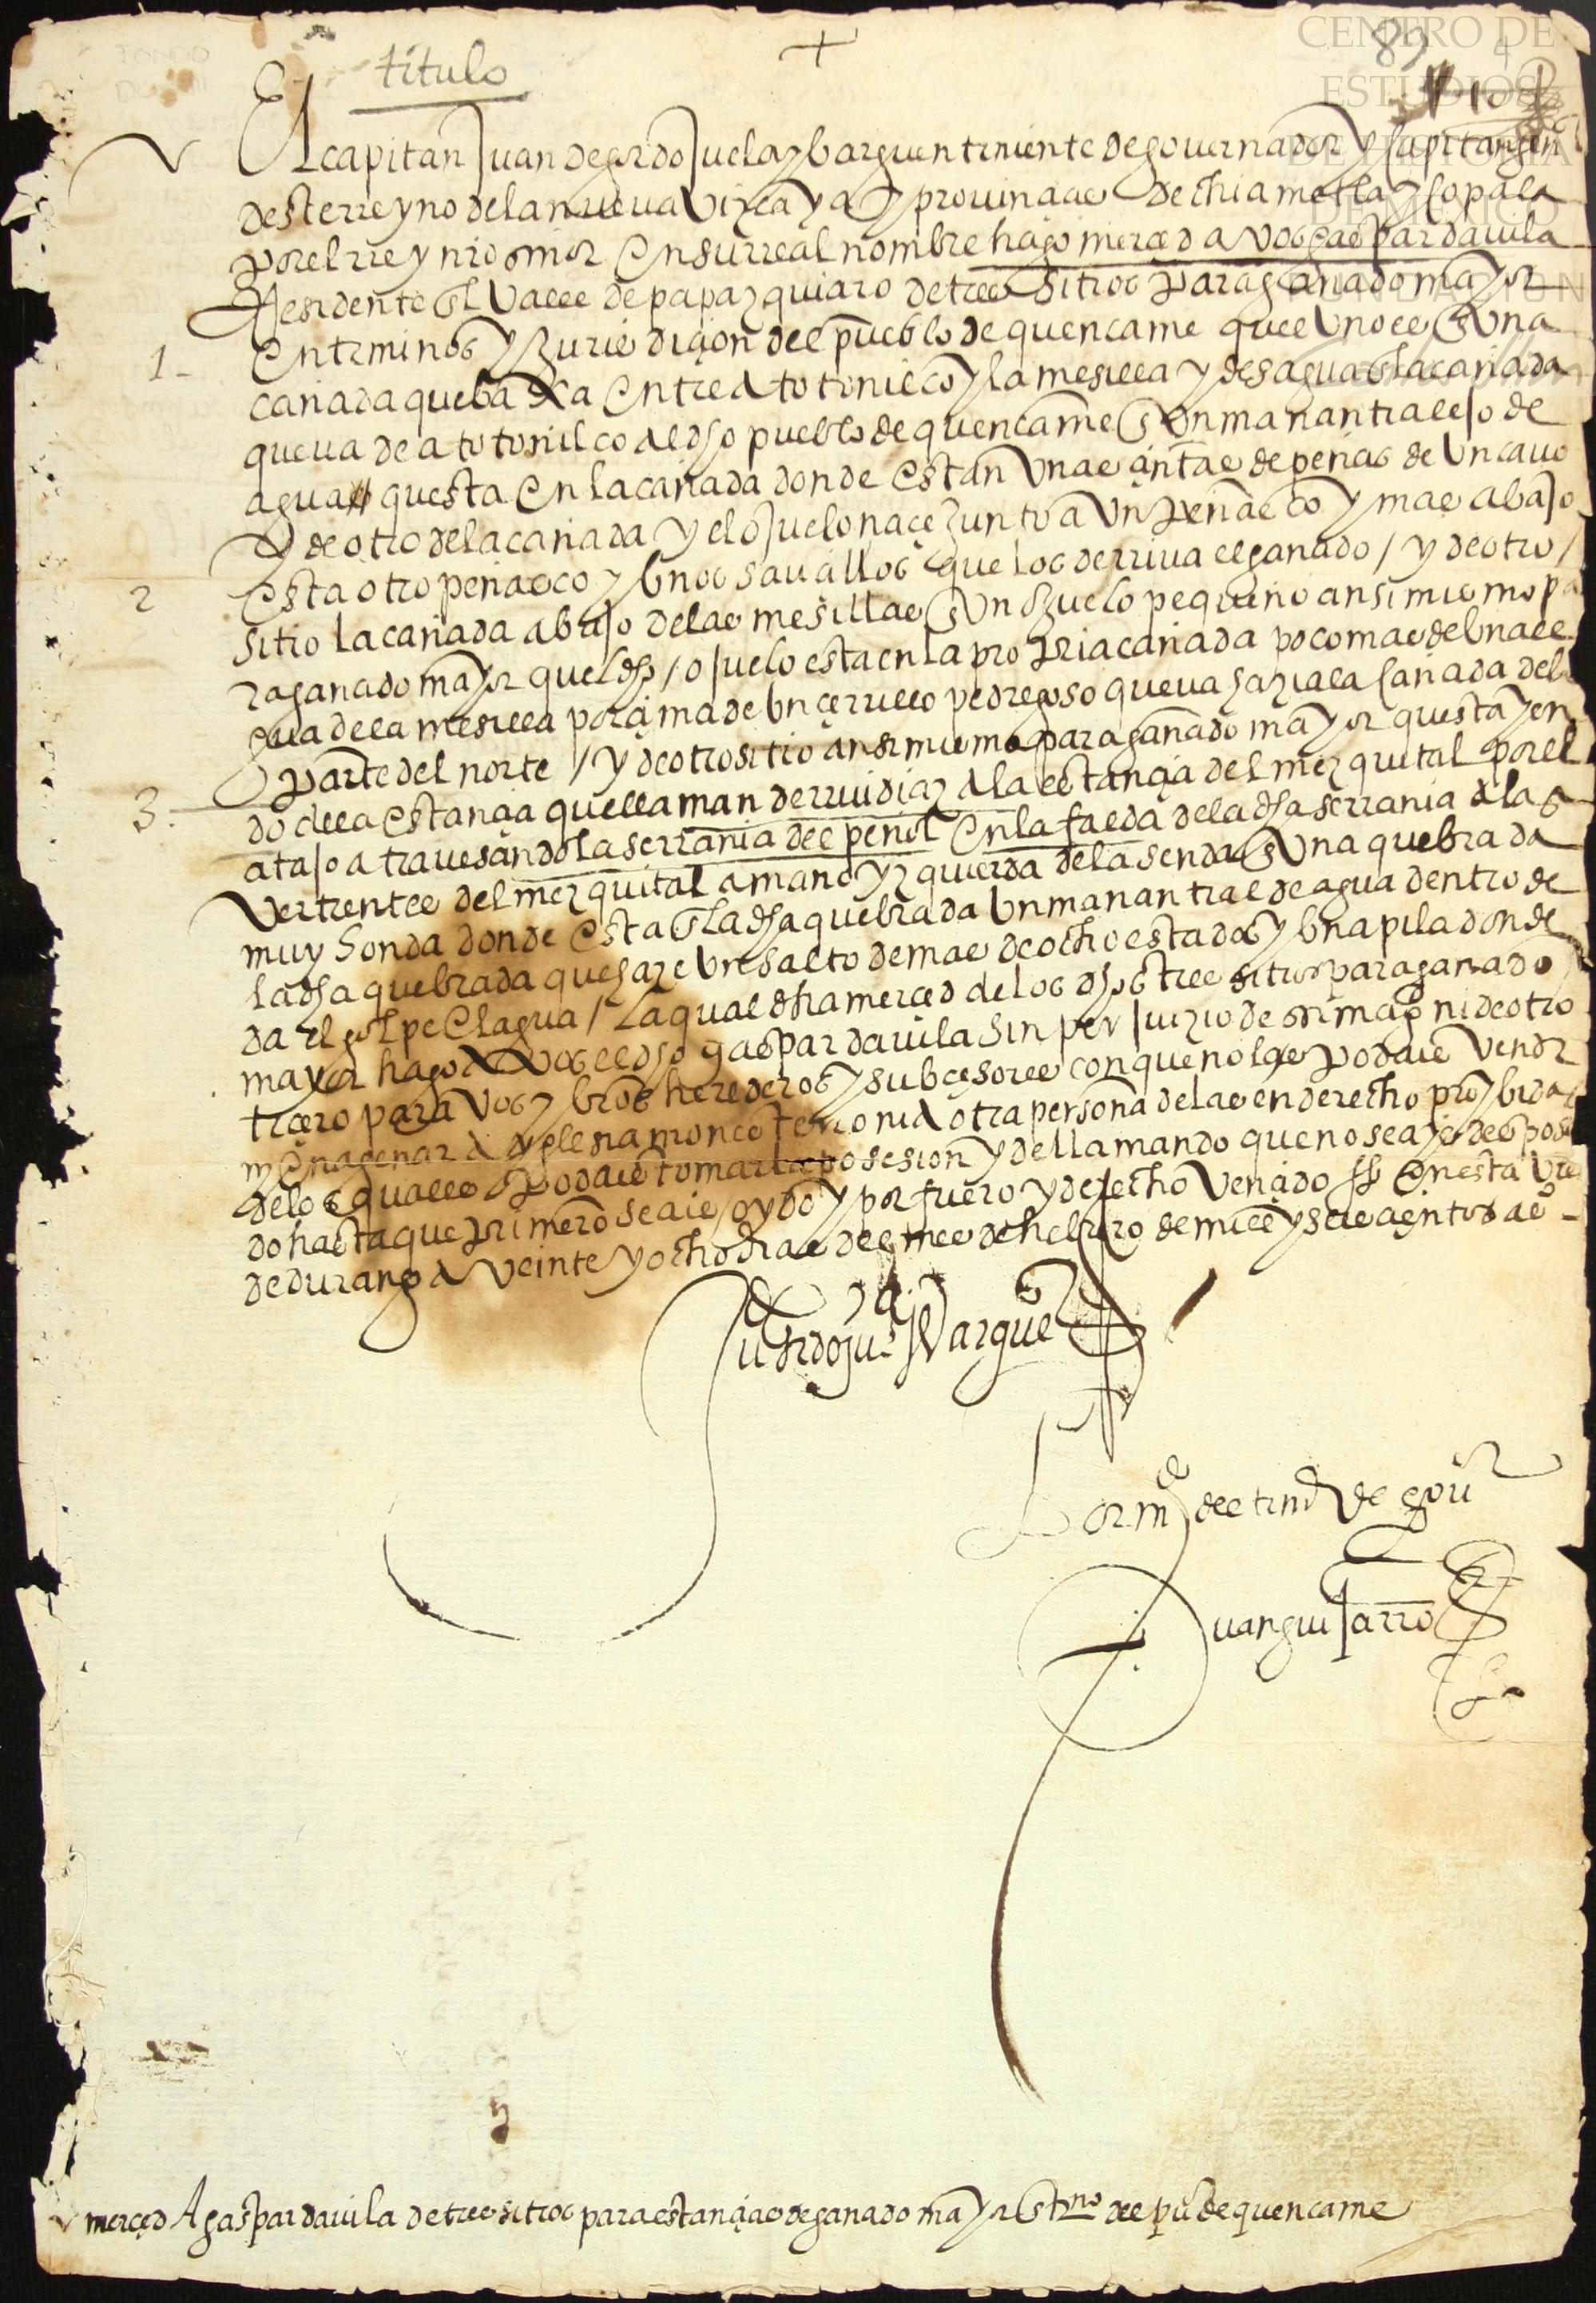 título
+
89
El capitan Juan de gordojuela ybarguen tiniente de governador y capitan gen
deste rreyno de la nueva vizcaya y provinçias de chiametla y copala
por el rrey nro señor en su rreal nombre hago merced a vos gaspar davila
rresidente en el valle de papazquiaro de tres sitios para ganado mayor
1 - en terminos y jurisdiçion del pueblo de quencame que el uno es en una
cañada que baxa entre atotonilco y la mesilla y desagua en la cañada
que va de atotonilco al dho pueblo de quencame en un manantial ojo de
agua questa en la cañada donde estan unas juntas de peñas de un cavo
y de otro de la cañada y el ojuelo naçe junto a un peñasco y mas abajo
2 esta otro peñasco y unos savallos que los derriva el ganado / y de otro /
sitio la cañada abajo de las mesillas en un ojuelo pequeño ansimismo pa
ra ganado mayor quel dho / ojuelo esta en la propria cañada poco mas de una le
gua de la mesilla por çima de un çerrillo pedregoso que va hazia la cañada de la
parte del norte / y de otro sitio ansimismo para ganado mayor questa yen
3. do de la estançia que llaman de rrui diaz a la estançia del mezquital por el
atajo atravesando la serrania del peñol en la falda de la dha serrania a las
vertientes del mezquital a mano yzquierda de la senda en una quebrada
muy honda donde esta en la dha quebrada un manantial de agua dentro de
la dha quebrada que haze un salto de mas de ocho estados y una pila donde
da el golpe el agua / la qual dha merced de los dhos tres sitios para ganado
mayor hago a vos el dho gaspar davila sin perjuizio de su magd ni de otro
terçero para vos y vros herederos y subçesores con que no los podais vender
ny enagenar a yglesia monesterio ni a otra persona de las en derecho proybidas
de los quales podais tomar la posesion y della mando que no seais desposey
do hasta que primero seais oydo y por fuero y derecho vençido fho en esta va
de durango a veinte y ocho dias del mes de hebrero de mill y seisçientos as -
Ju de gordojuela Ybarguen
Por mdo del tinie de gour
Juan guijarro
merçed A gaspar davila de tres sitios para estançias de ganado mayor en trno del pu de quencame